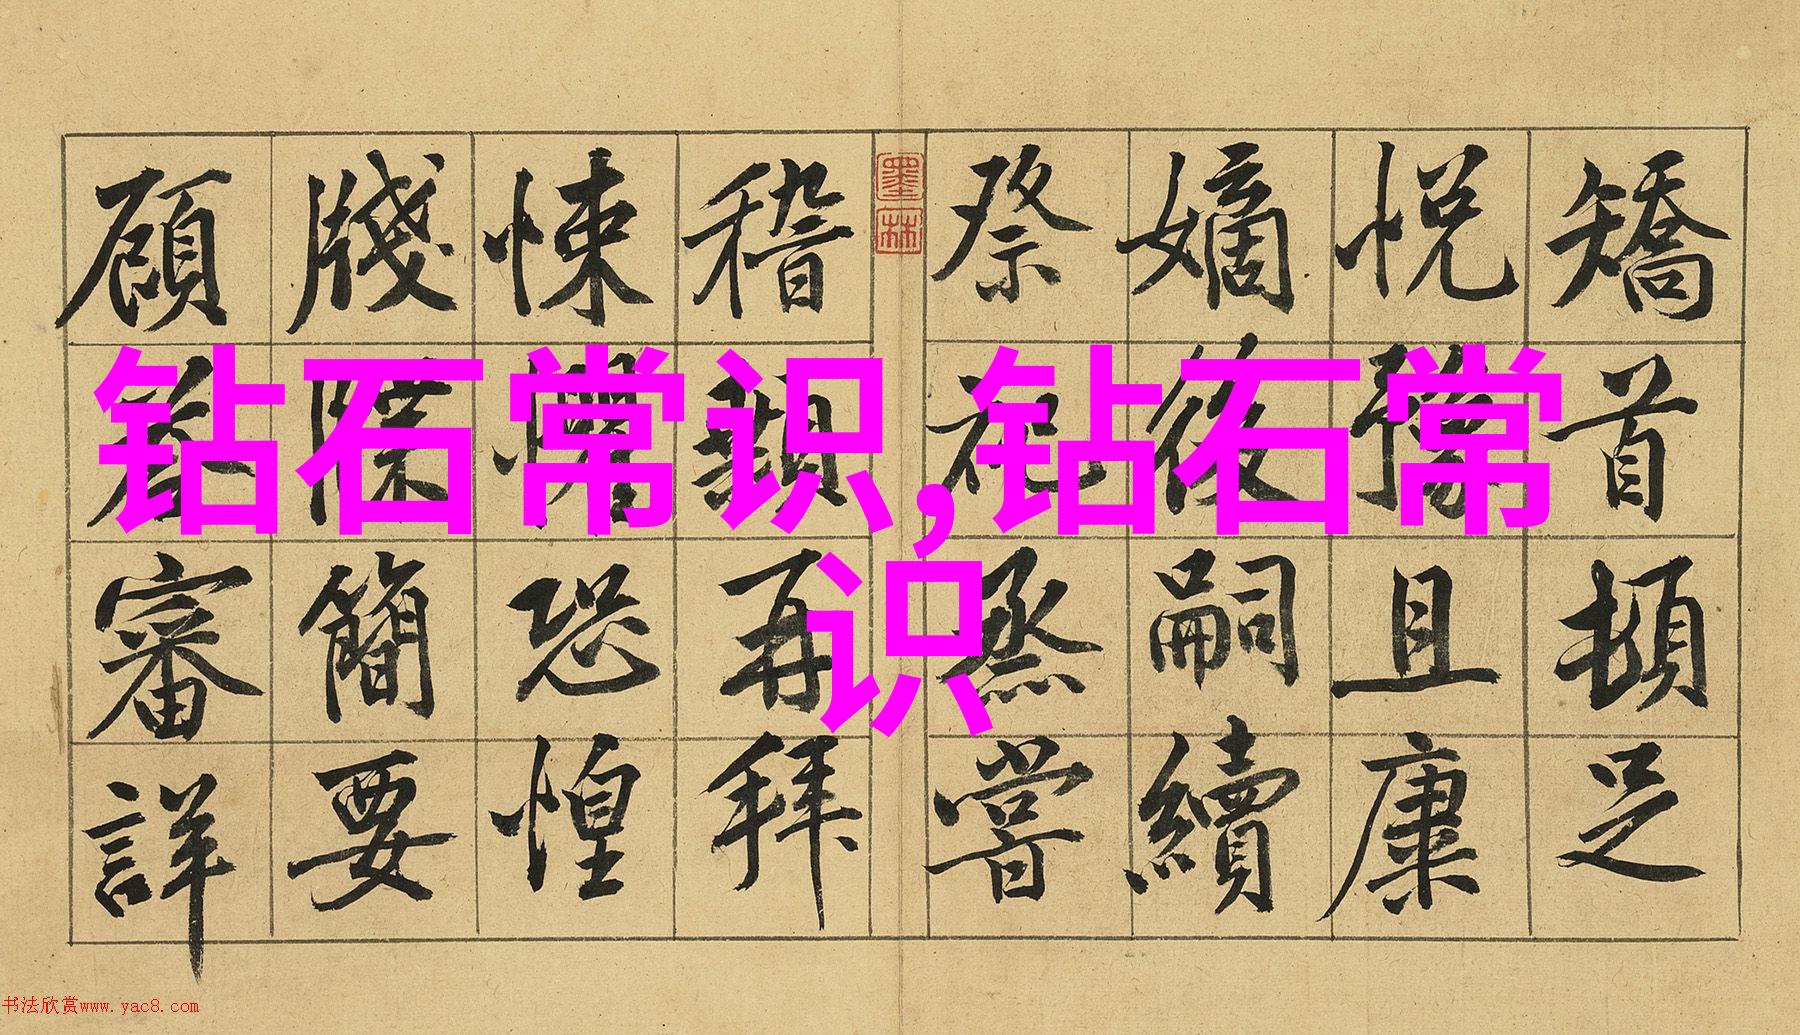 钻石常识,钻石常
识
矯首頓足
悅豫且康
嫡後嗣續
祭祀烝嘗
墨林
稽顙再拜
悚懼恐惶
牋牒簡要
顧答審詳
书法欣赏www.yac8.com